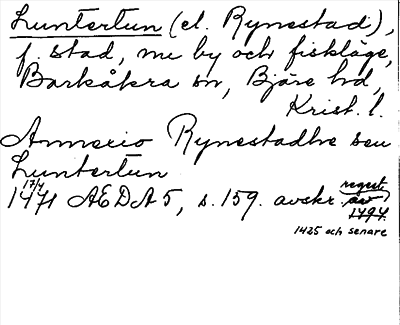 Luntertun (el. Rynestad),
f. stad, nu by och fiskläge,
Barkåkra sn, Bjäre hd,
Krist. l.
Annexio Rynestadhe seu
Luntertun
17/4 regest
1471 AEDA 5, s. 159. avskr. av
1494.
1425 och senare